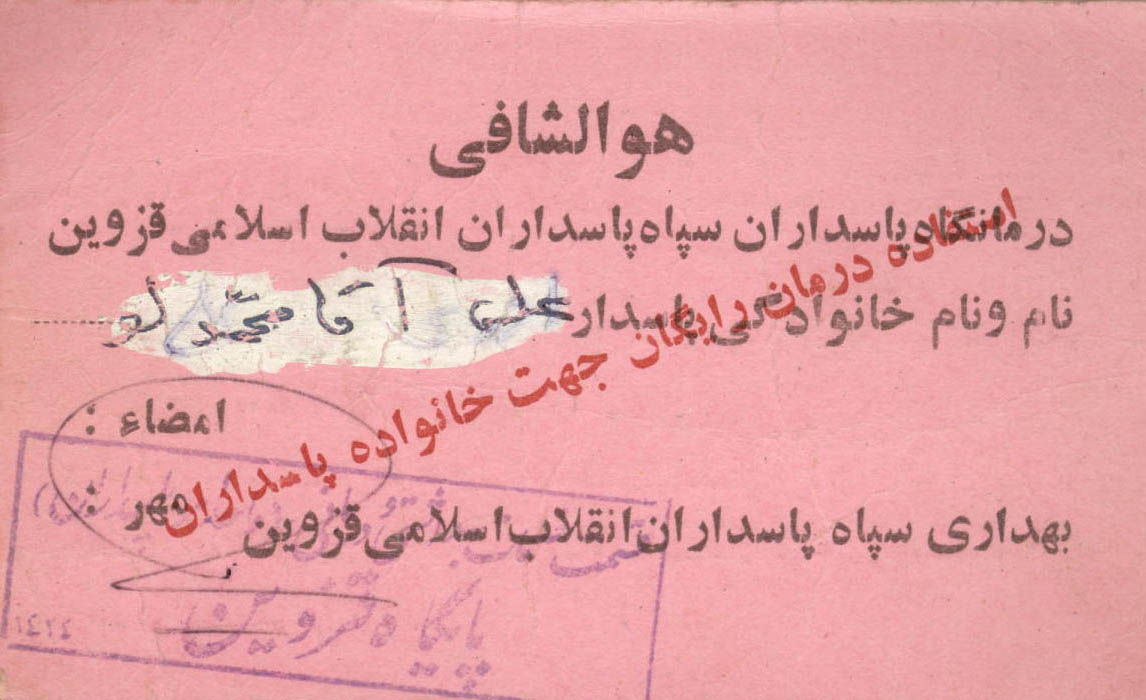 هوالشافی
درمانگاه پاسداران سپاه پاسداران انقلاب اسلامی قزوین
نام ونام خانوادگی پاسدار علی آقا محمدی
استفاده درمان رایگان جهت خانواده پاسداران
امضاء :
مهر :
بهداری سپاه پاسداران انقلاب اسلامی قزوین
پایگاه قزوین
۱٤۲٤